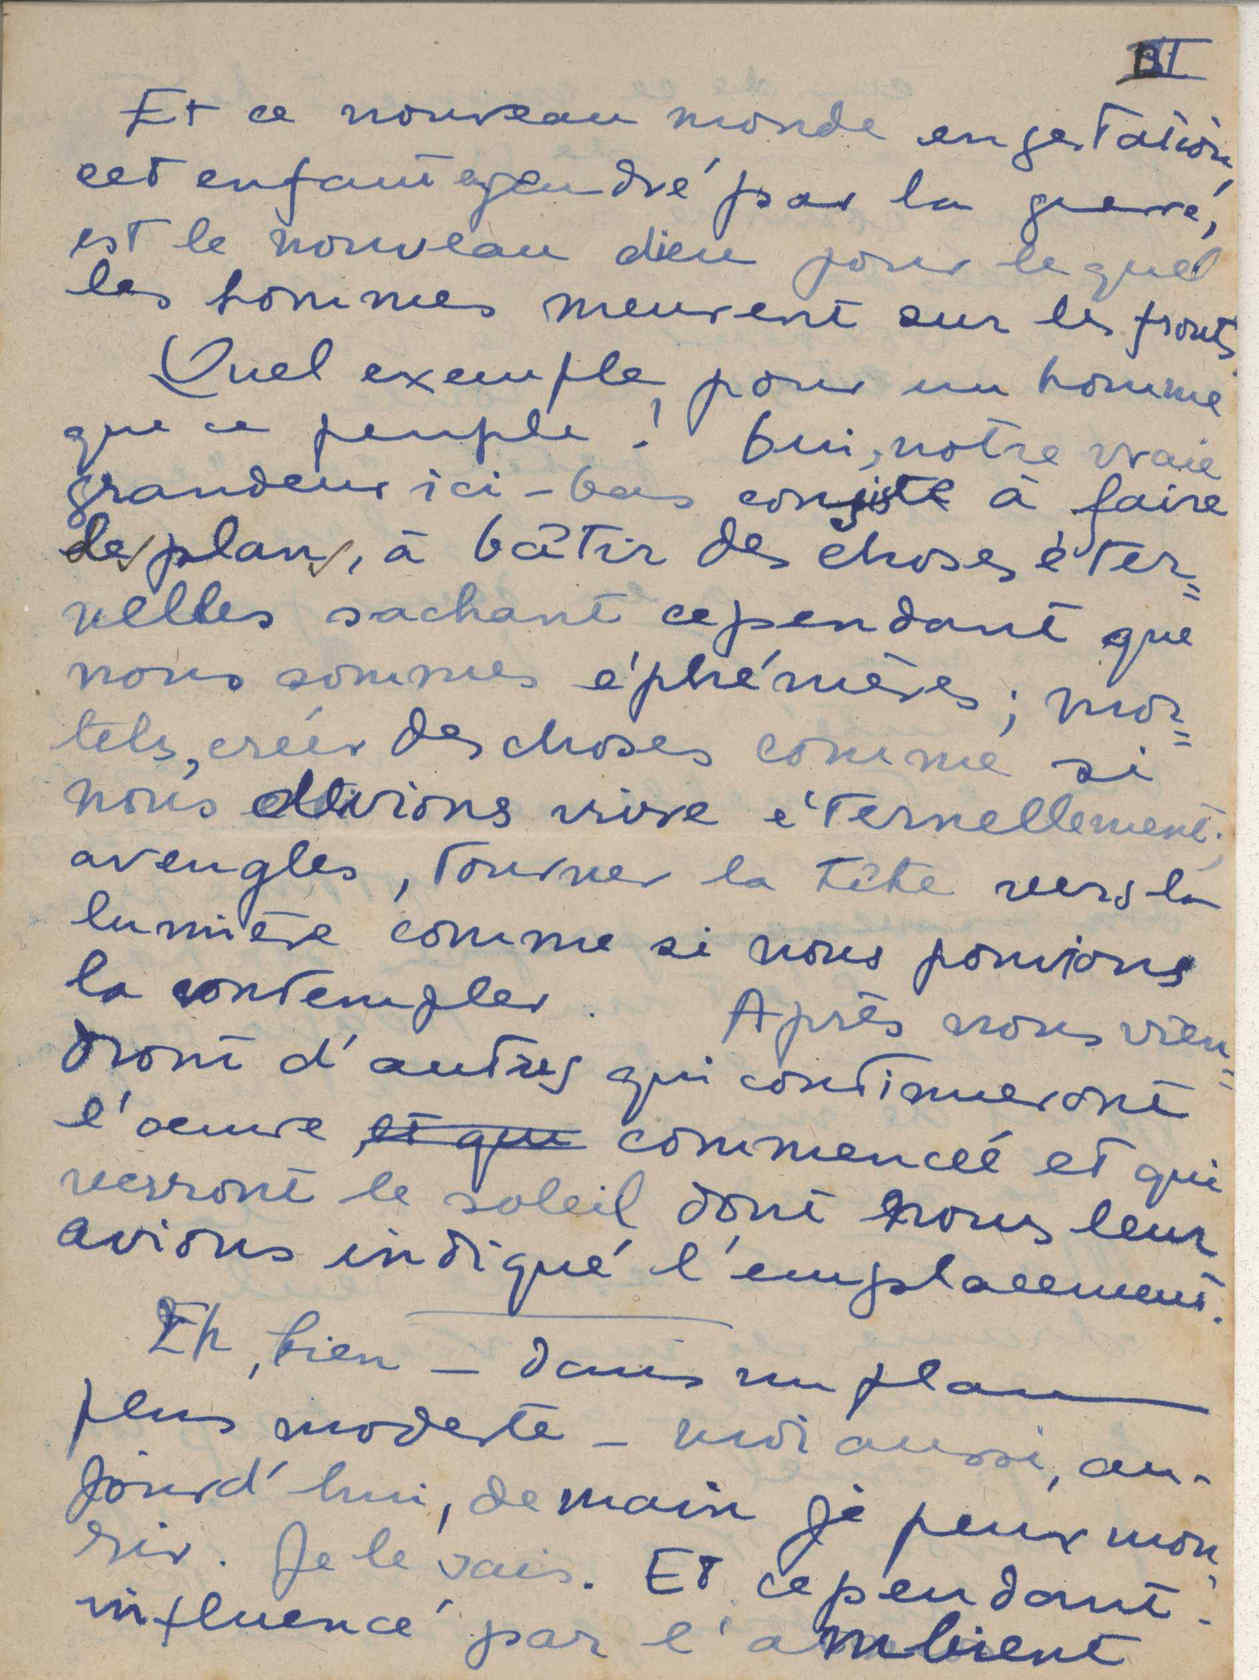 III
Et ce nouveau monde en gestation,
cet enfant engendré par la guerre,
est le nouveau dieu pour lequel
les hommes meurent sur les fronts.
Quel exemple, pour un homme
que ce peuple ! Oui, notre vraie
grandeur ici-bas consiste à faire
des plans, à bâtir des choses éter=
nelles sachant cependant que
nous sommes éphémères ; mor=
tels, créer des choses comme si
nous devions vivre éternellement ;
aveugles, tourner la tête vers la
lumière comme si nous pouvions
la contempler. Après nous vien=
dront d'autres qui continueront
l'oeuvre et que commencée et qui
verront le soleil dont nous leur
avions indiqué l'emplacement.
Eh, bien — dans un plan
plus modeste — moi aussi, au-
jourd'hui, demain je peux mou=
rir. Je le sais. Et cependant -
influencé par l'ambient